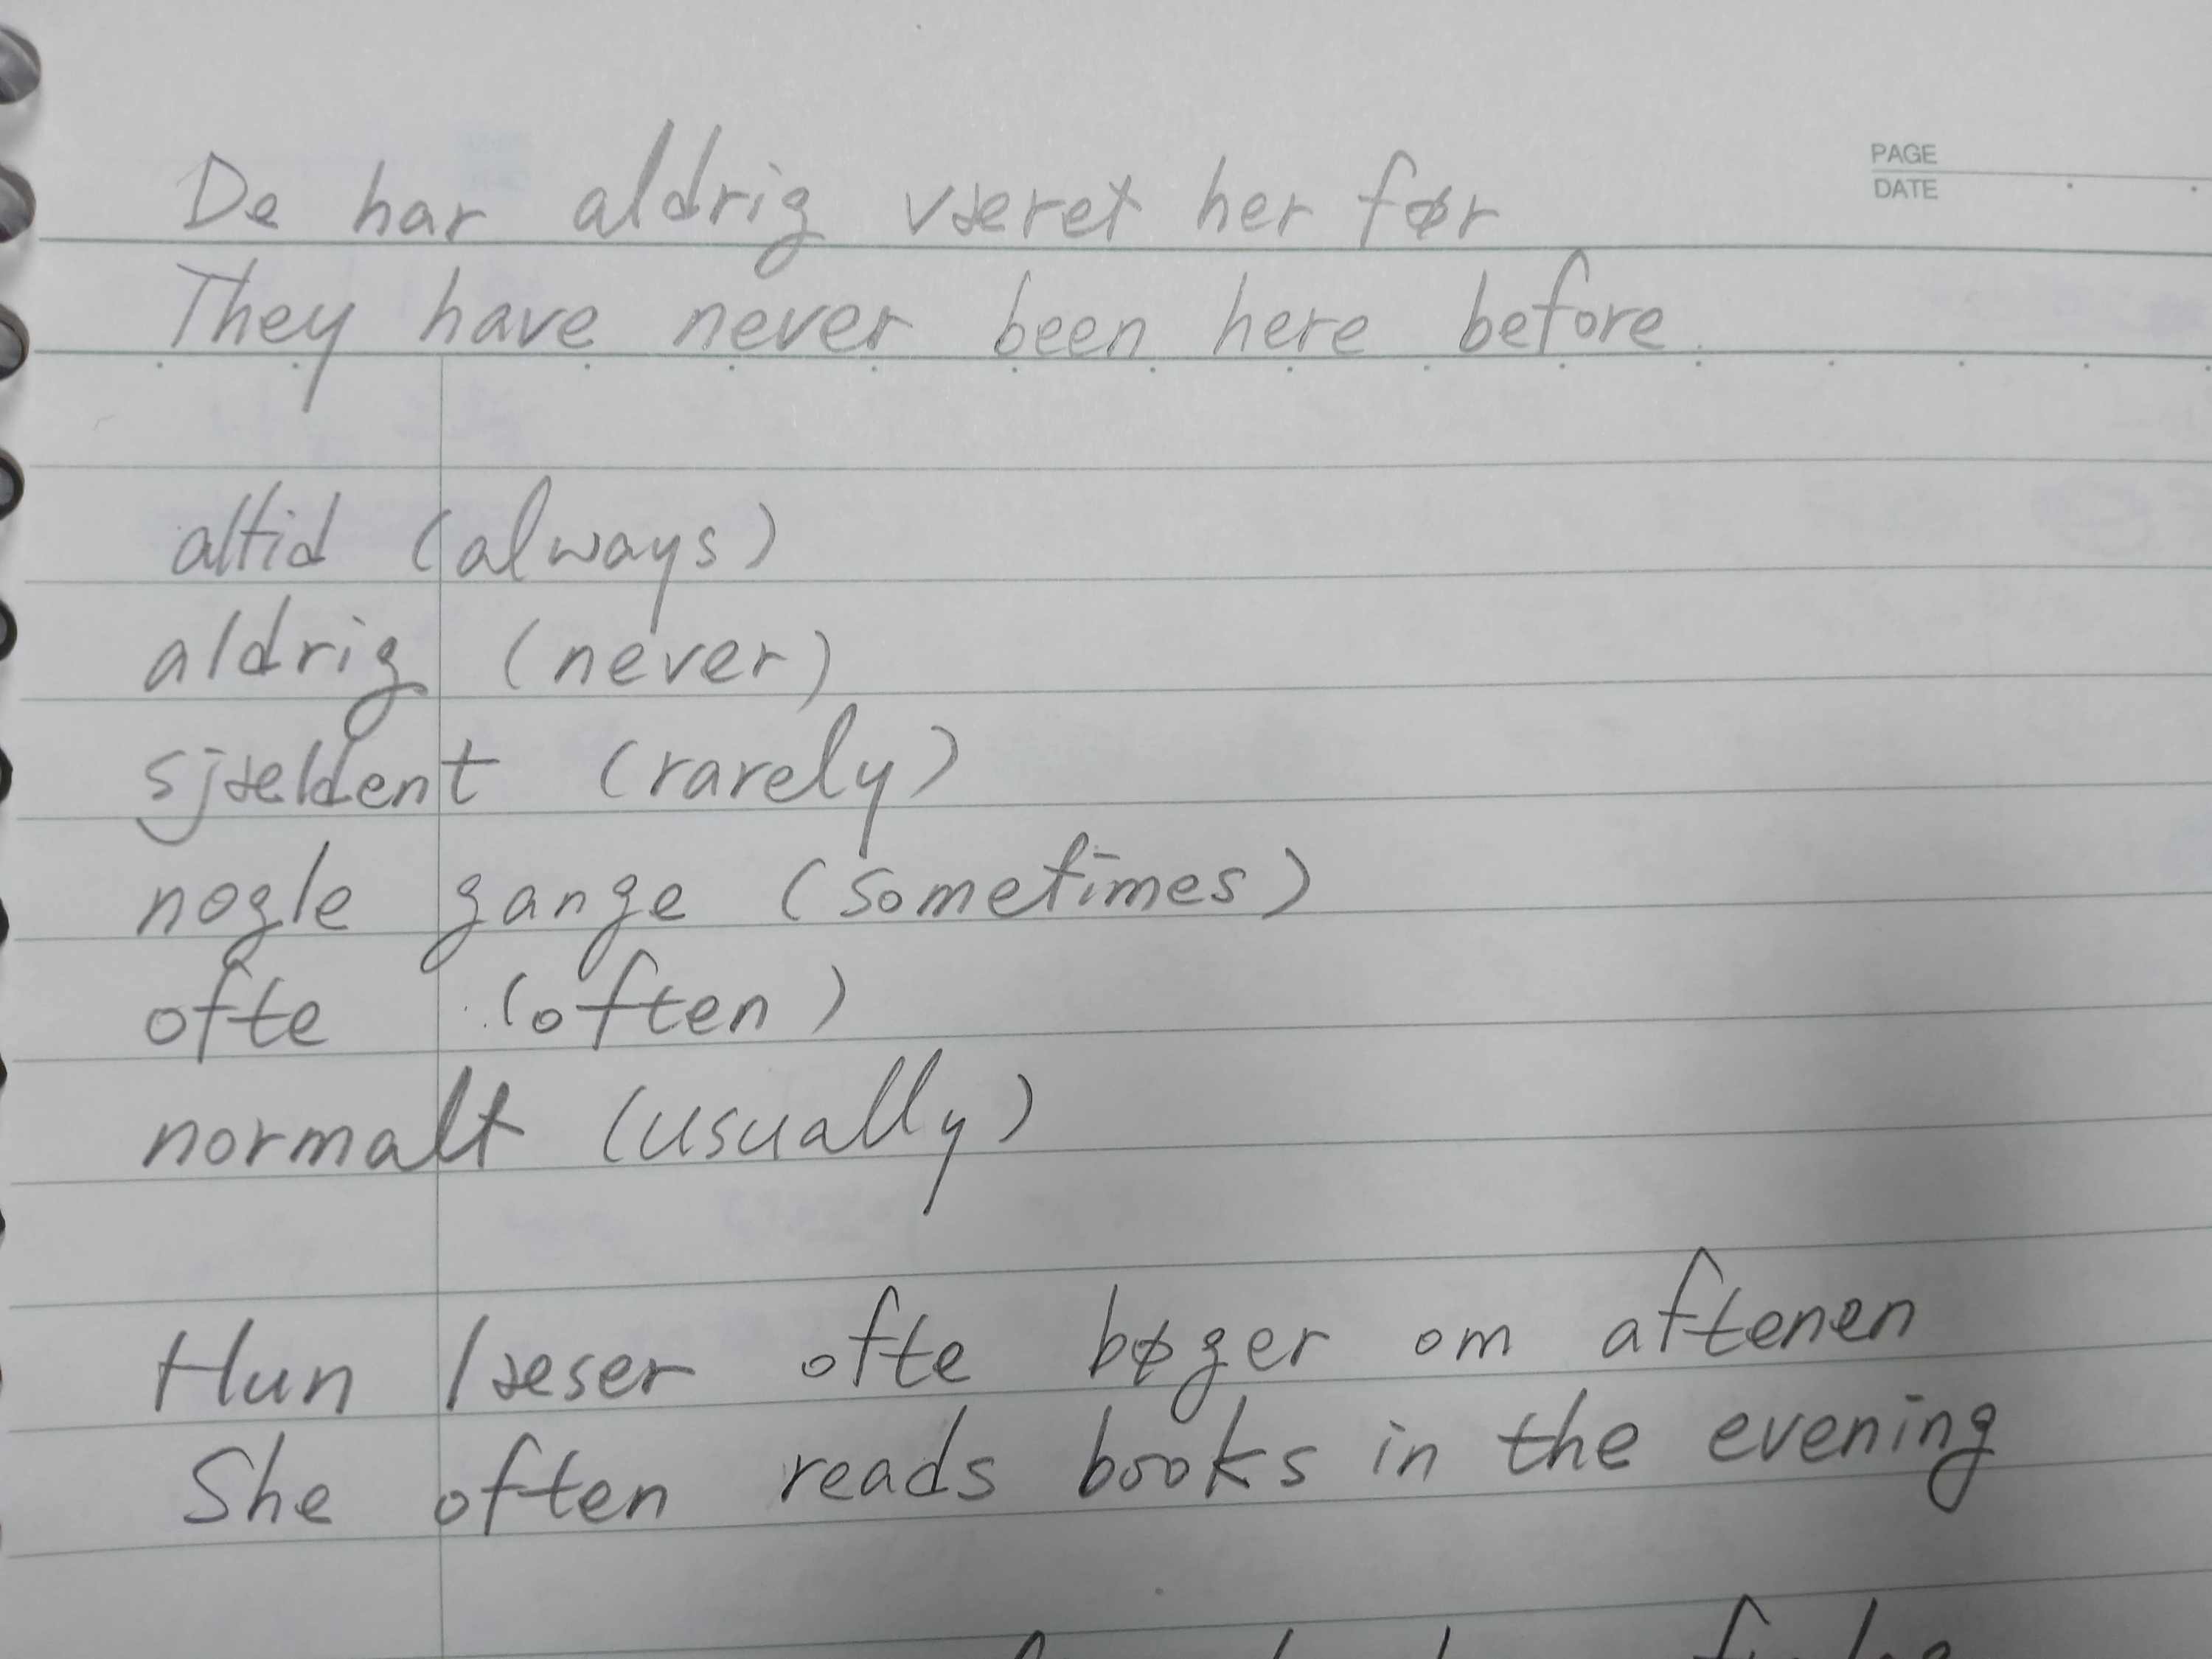 PAGE
DATE
De har aldrig været her før
They have never been here before.
altid (always)
aldrig (never)
sjældent (rarely)
nogle gange (sometimes)
ofte (often)
normalt (usually)
Hun læser ofte bøger om aftenen
She often reads books in the evening